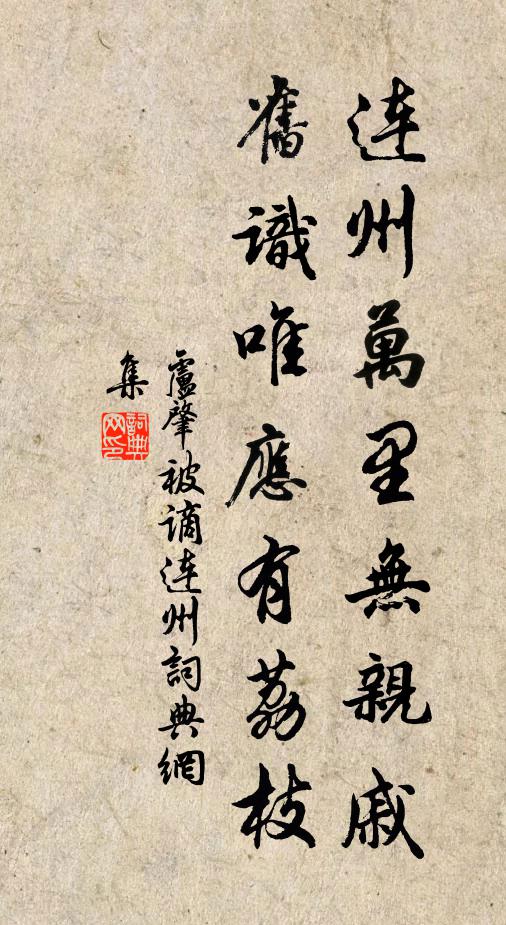 連州萬里無親戚
舊識唯應有荔枝
盧肇被謫連州詞典網
集
詞典网印